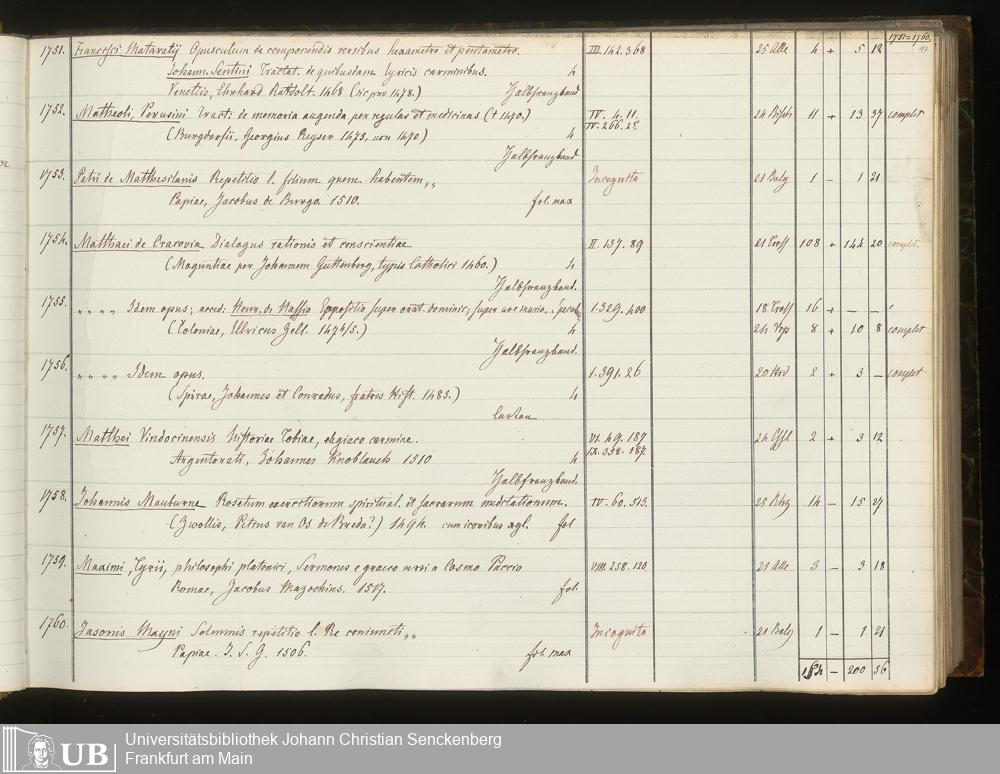 1751=1760.
1751. Francisci Mataratij Opusculum de componendis versibus hexametro et pentametro. III. 142. 368 25 Alle 4 + 5 12
Johann. Sentini Tractat. de quibusdam lyricis carminibus. 4
Venetiis, Ehrhard Ratdolt. 1468 (sic pro 1478.) Halbfranzband
1752. Matheoli, Perusini Tract. de memoria augenda per regulas et medicinas († 1470.) IV. 4. 11. 11 + 13 37 complet
(Burgdorfii, Georgius Reyser 1473, non 1470) 4 IV. 266. 25
Halbfranzband
1753. Petri de Matthesilanis Repetitio l. filium quem habentem,, Incognita 21 1 – 1 21
Papiae, Jacobus de Burrgo. 1510. fol. max
1754. Matthaei de Cracovia Dialogus rationis et conscientiae II. 137. 89 108 144 20 complet.
(Moguntiae per Johannem Guttenberg, typis Catholici 1460.) 4
Halbfranzband.
1755. „ „ „ „ Idem opus; acced. Henr. de Hassia Expositio super orat. dominic; super ave maria, 1. 329. 400 16 + – –
(Coloniae, Ulricus Zell. 1474/5.) 4 24 8 + 10 8 complet
Halbfranzband.
1756. „ „ „ „ Idem opus. 1. 391. 26 20 2 + 3 – complet
(Spirae, Johannes et Conradus, fratres Hist. 1485.) 4
Carton
1757. Matthei Vindocinensis Historiae Tobiae, elegiaco carmine. VI. 49. 187 24 2 + 3 12
Argentorati, Johannes Knoblauch 1510 4 IX. 358. 187.
Halbfranzband.
1758. Johannis Mauburne Rosetum exercitiorum spiritual. et sacrarum meditationum. IV. 60. 513. 25 14 – 15 27
(Zwollis, Petrus van Os de Breda?) 1494. cum iconibus xyl. fol
1759. Maximi, Tyrii, philosophi platonici, Sermones e graeco versi a Cosmo Paccio VIII. 258. 120 25 Alle 3 – 3 18
Romae, Jacobus Mazochius. 1517. fol.
1760. Jasonis Mayni Solemnis repetitio l. Re coniuncti,, Incognita 21 1 – 1 21
Papiae. J. S. G. 1506. fol. max
– 200 56
UB
Universitätsbibliothek Johann Christian Senckenberg
Frankfurt am Main